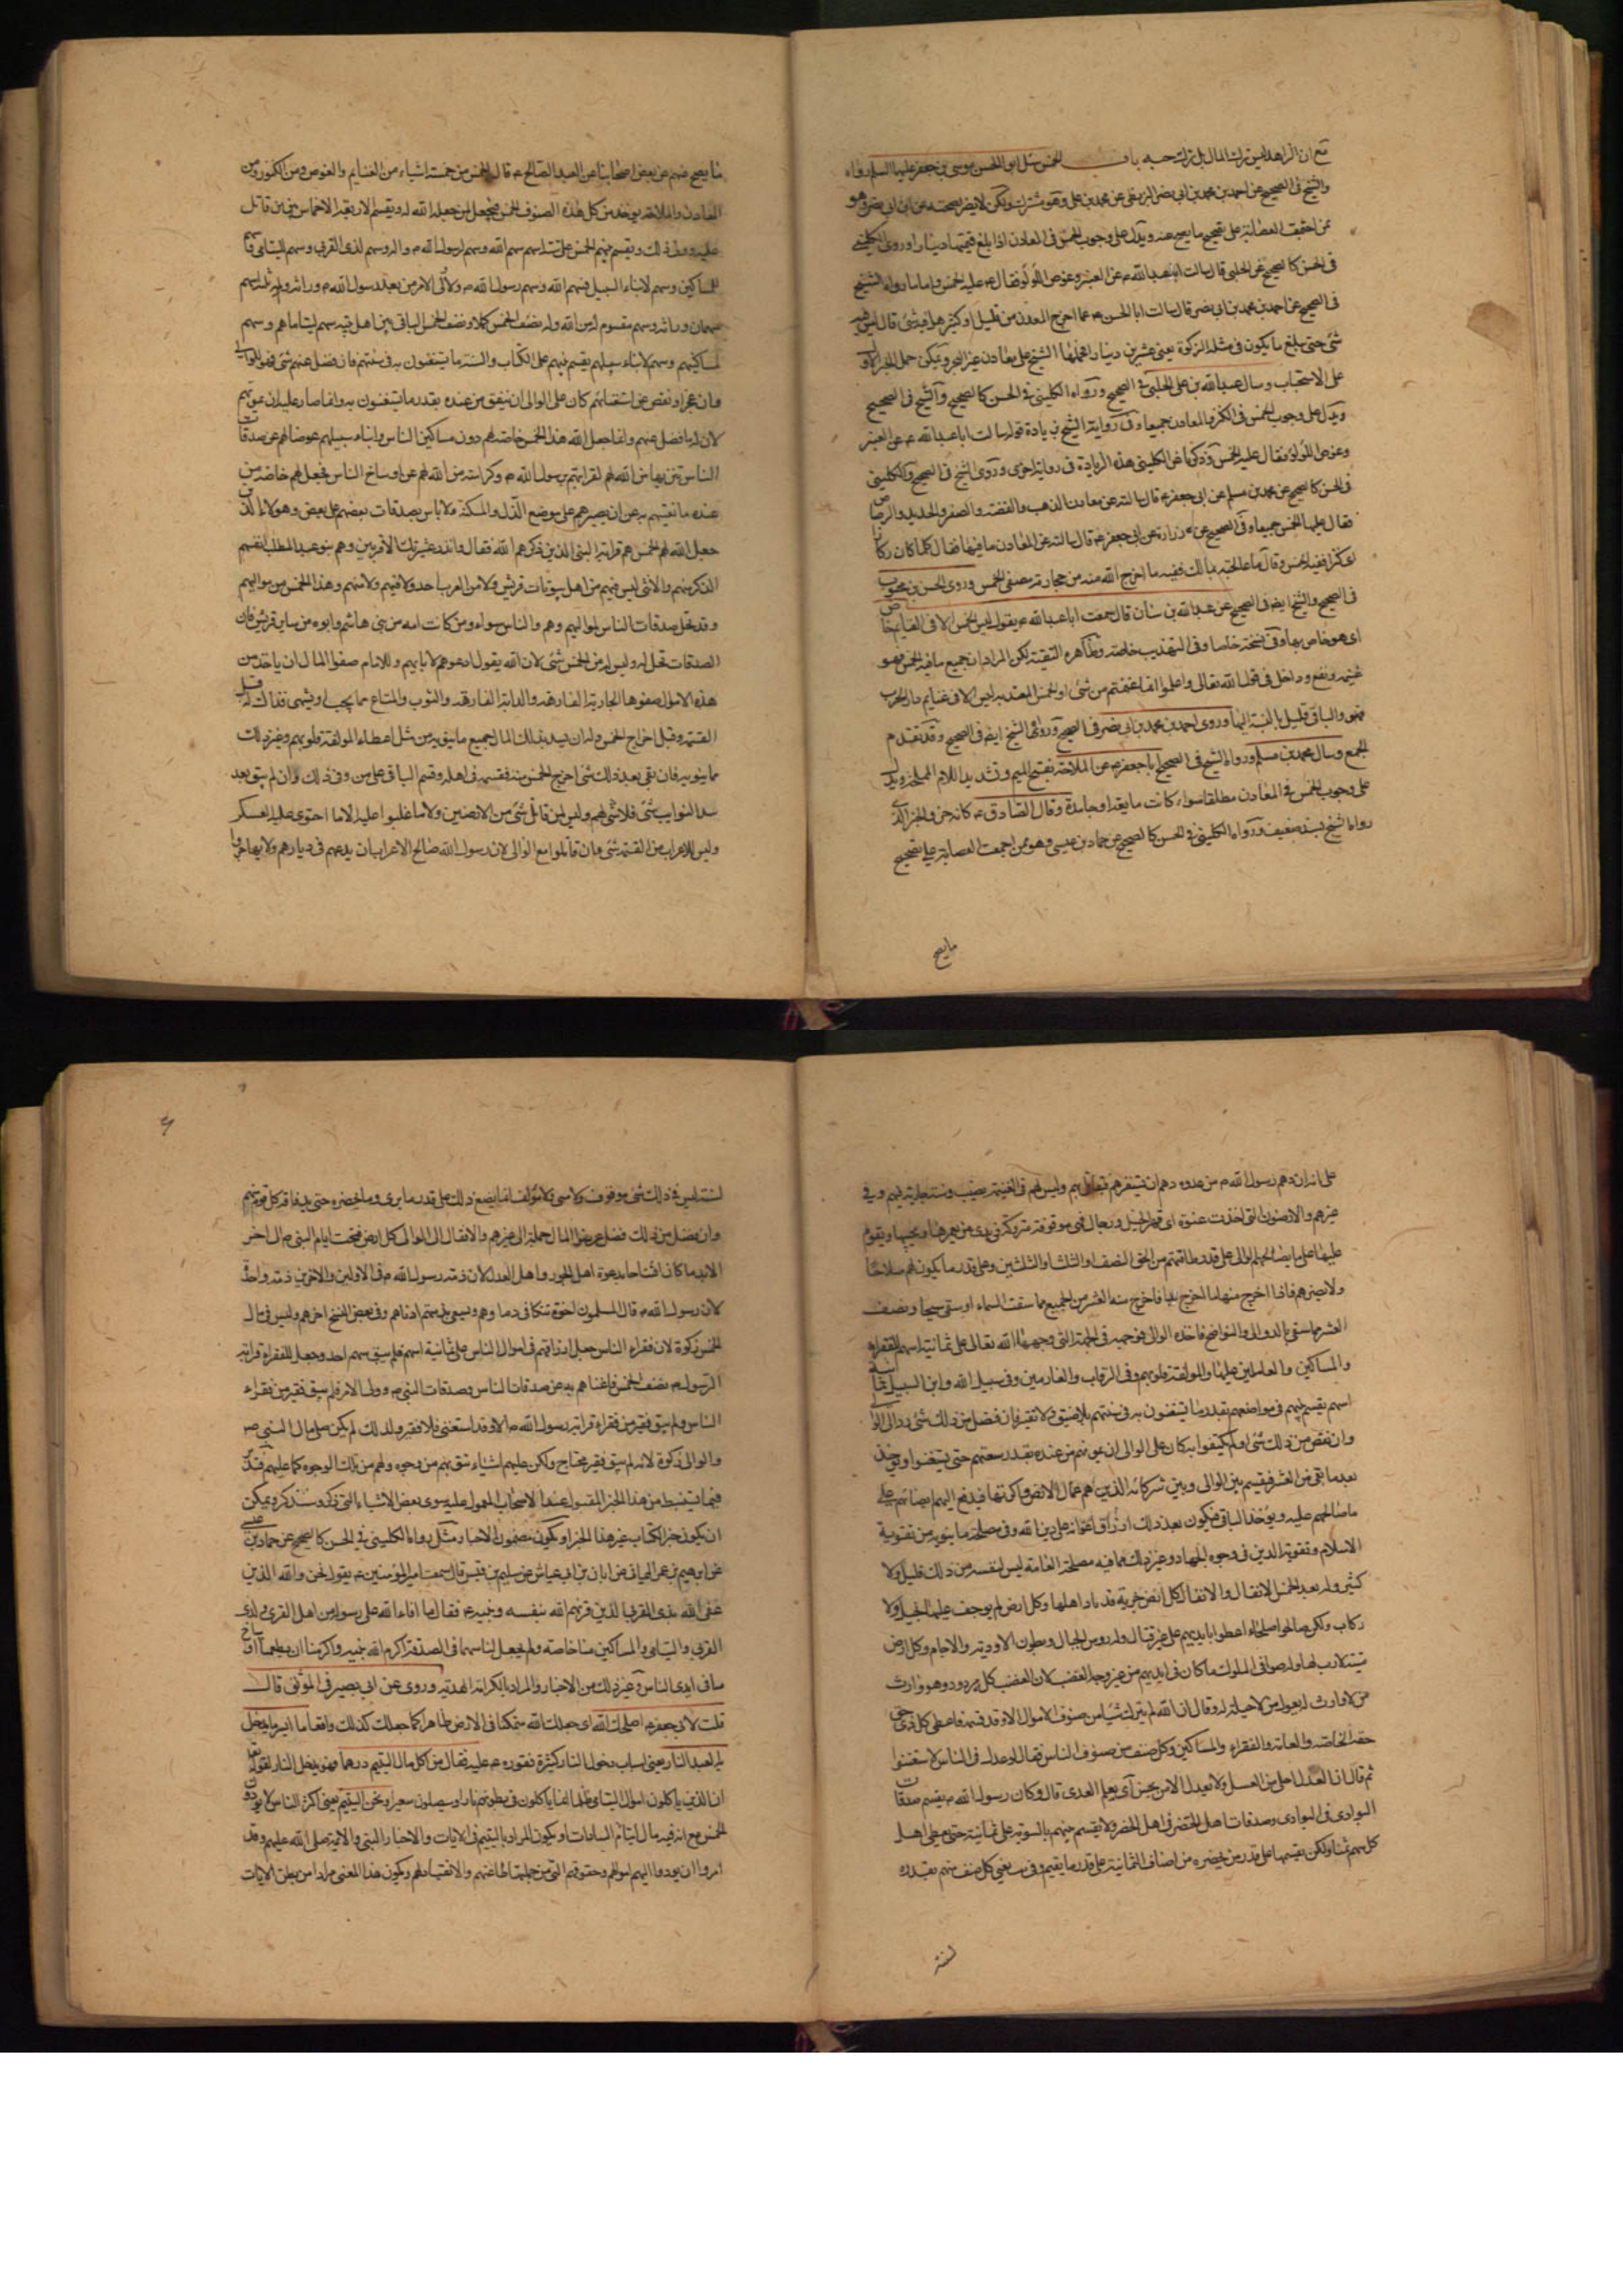 مع ان الزاهد ليس ترك المال بل ترك حبه باب الخمس سئل ابو الحسن موسى بن جعفر عليهما السلم رواه
والشيخ فى الصحيح عن احمد بن محمد بن ابى نصر البزنطى عن محمد بن على وهو مشترك ولكن لا يضر لصحته عن ابن ابى نصر وهو
ممن اجمعت العصابة على تصحيح ما يصح عنه ويدل على وجوب الخمس فى المعادن اذا بلغ قيمتها دينارا وروى الكلينى
فى الحسن كالصحيح عن الحلبى قال سالت ابا عبد الله ع عن العنبر وغوص اللؤلؤ فقال ع عليه الخمس واما ما رواه الشيخ
فى الصحيح عن احمد بن محمد بن ابى نصر قال سالت ابا الحسن ع عما اخرج المعدن من قليل او كثير هل فيه شئ قال ليس فيه
شئ حتى يبلغ ما يكون فى مثله الزكوة يعنى عشرين دينارا فحملها الشيخ على معادن غير البحر ويمكن حمل الخبر الاول
على الاستحباب وسال عبيد الله بن على الحلبى فى الصحيح ورواه الكلينى فى الحسن كالصحيح والشيخ فى الصحيح
ويدل على وجوب الخمس فى الكنز والمعادن جميعا وفى رواية الشيخ زيادة قوله سالت ابا عبد الله ع عن العنبر
وغوص اللؤلؤ فقال عليه الخمس وذكرنا عن الكلينى هذه الزيادة فى رواية اخرى وروى الشيخ فى الصحيح والكلينى
فى الحسن كالصحيح عن محمد بن مسلم عن ابى جعفر ع قال سالته عن معادن الذهب والفضة والصفر والحديد والرصاص
فقال عليها الخمس جميعا وفى الصحيح عن زرارة عن ابى جعفر ع قال سالته عن المعادن ما فيها فقال كلما كان ركازا
اى كنزا ففيه الخمس وقال ما عالجته بمالك ففيه ما اخرج الله منه من حجارته مصفى الخمس وروى الحسن بن محبوب
فى الصحيح والشيخ ايضا فى الصحيح عن عبد الله بن سنان قال سمعت ابا عبد الله ع يقول ليس الخمس الا فى الغنايم خاصة
اى هو خاص بها وفى نسخة خاصا وفى التهذيب خاصة وظاهره التقية لكن المراد ان جميع ما فيه الخمس فهو
غنيمة ونفع وداخل فى قول الله تعالى واعلموا انما غنمتم من شئ او الخمس المعتد به ليس الا فى غنايم دار الحرب
فهى والباقى قليل بالنسبة اليها وروى احمد بن محمد بن ابى نصر فى الصحيح ورواه الشيخ ايضا فى الصحيح وقد تقدم
الجمع وسال محمد بن مسلم ورواه الشيخ فى الصحيح ابا جعفر ع عن الملاحة بفتح الميم وتشديد اللام المملحة ويدل
على وجوب الخمس فى المعادن مطلقا سواء كانت مايعة او جامدة وقال الصادق ع كانه جزء الخبر الذى
رواه الشيخ بسند ضعيف ورواه الكلينى فى الحسن كالصحيح عن حماد بن عيسى وهو ممن اجمعت العصابة على تصحيح
ما يصح
ما يصح عنهم عن بعض اصحابنا عن العبد الصالح ع قال الخمس من خمسة اشياء من الغنايم والغوص ومن الكنوز ومن
المعادن والملاحة يوخذ من كل هذه الصنوف الخمس فيجعل لمن جعله الله له ويقسم الاربعة الاخماس بين من قاتل
عليه وولى ذلك ويقسم بينهم الخمس على ستة اسهم سهم الله وسهم لرسول الله ص وسهم لذى القربى وسهم لليتامى وسهم
للمساكين وسهم لابناء السبيل فسهم الله وسهم رسول الله ص لاولى الامر من بعد رسول الله ص وراثة وله ثلثة اسهم
سهمان وراثة وسهم مقسوم له من الله وله نصف الخمس كملا ونصف الخمس الباقى بين اهل بيته سهم ليتاماهم وسهم
لمساكينهم وسهم لابناء سبيلهم يقسم بينهم على الكتاب والسنة ما يستغنون به فى سنتهم فان فضل عنهم شئ فهو للوالى
وان عجز او نقص عن استغنائهم كان على الوالى ان ينفق من عنده بقدر ما يستغنون به وانما صار عليه ان يمونهم
لان له ما فضل عنهم وانما جعل الله هذا الخمس خاصة لهم دون مساكين الناس وابناء سبيلهم عوضا لهم عن صدقات
الناس تنزيها من الله لهم لقرابتهم برسول الله ص وكرامة من الله لهم عن اوساخ الناس فجعل لهم خاصة من
عنده ما يغنيهم به عن ان يصيرهم على موضع الذل والمسكنة ولا باس بصدقات بعضهم على بعض وهولاء الذين
جعل الله لهم الخمس هم قرابة النبى الذين ذكرهم الله فقال وانذر عشيرتك الاقربين وهم بنو عبد المطلب انفسهم
الذكر منهم والانثى ليس فيهم من اهل بيوتات قريش ولا من العرب احد ولا فيهم ولا منهم فى هذا الخمس من مواليهم
وقد تحل صدقات الناس لمواليهم وهم والناس سواء ومن كانت امه من بنى هاشم وابوه من ساير قريش فان
الصدقات تحل له وليس له من الخمس شئ لان الله يقول ادعوهم لابائهم وللامام صفو المال ان ياخذ من
هذه الاموال صفوها الجارية الفارهة والدابة الفارهة والثوب والمتاع مما يحب او يشتهى فذلك له قبل
القسمة وقبل اخراج الخمس وله ان يسد بذلك المال جميع ما ينوبه من مثل اعطاء المولفة قلوبهم وغير ذلك
مما ينوبه فان بقى بعد ذلك شئ اخرج الخمس منه فقسمه فى اهله وقسم الباقى على من ولى ذلك وان لم يبق بعد
سد النوايب شئ فلا شئ لهم وليس لمن قاتل شئ من الارضين ولا ما غلبوا عليه الا ما احتوى عليه العسكر
وليس للاعراب من القسمة شئ وان قاتلوا مع الوالى لان رسول الله صالح الاعراب ان يدعهم فى ديارهم ولا يهاجروا
على انه ان دهم رسول الله ص من عدوه دهم ان يستنفرهم فيقاتل بهم وليس لهم فى الغنيمة نصيب وسنته جارية فيهم وفى
غيرهم والارضون التى اخذت عنوة اى قهرا بخيل ورجال فهى موقوفة متروكة فى يدى من يعمرها ويحييها ويقوم
عليها على ما يصالحهم الوالى على قدر طاقتهم من الحق النصف او الثلث او الثلثين وعلى قدر ما يكون لهم صلاحا
ولا يضرهم فاذا اخرج منها ما اخرج بدا فاخرج منه العشر من الجميع مما سقت السماء او سقى سيحا ونصف
العشر مما سقى بالدوالى والنواضح فاخذه الوالى فوجهه فى الجهة التى وجهها الله تعالى على ثمانية اسهم للفقراء
والمساكين والعاملين عليها والمولفة قلوبهم وفى الرقاب والغارمين وفى سبيل الله وابن السبيل ثمانية
اسهم يقسم بينهم فى مواضعهم بقدر ما يستغنون به فى سنتهم بلا ضيق ولا تقتير فان فضل من ذلك شئ رد الى الوالى
وان نقص من ذلك شئ ولم يكتفوا به كان على الوالى ان يمونهم من عنده بقدر سعتهم حتى يستغنوا ويوخذ
بعد ما بقى من العشر فيقسم بين الوالى وبين شركائه الذين هم عمال الارض واكرتها فيدفع اليهم انصبائهم على
ما صالحهم عليه ويؤخذ الباقى فيكون بعد ذلك ارزاق اعوانه على دين الله وفى مصلحة ما ينوبه من تقوية
الاسلام وتقوية الدين فى وجوه الجهاد وغير ذلك مما فيه مصلحة العامة ليس لنفسه من ذلك قليل ولا
كثير وله بعد الخمس الانفال والانفال كل ارض خربة قد باد اهلها وكل ارض لم يوجف عليها بخيل ولا
ركاب ولكن صالحوا صلحا واعطوا بايديهم على غير قتال وله رؤس الجبال وبطون الاودية والاجام وكل ارض
ميتة لا رب لها وله صوافى الملوك ما كان فى ايديهم من غير وجه الغصب لان الغصب كله مردود وهو وارث
من لا وارث له يعول من لا حيلة له وقال ان الله لم يترك شيئا من صنوف الاموال الا وقد قسمه فاعطى كل ذى حق
حقه الخاصة والعامة والفقراء والمساكين وكل صنف من صنوف الناس فقال لو عدل فى الناس لاستغنوا
ثم قال ان العدل احلى من العسل ولا يعدل الا من يحسن اى يعلم العدل قال وكان رسول الله ص يقسم صدقات
البوادى فى البوادى وصدقات اهل الحضر فى اهل الحضر ولا يقسم بينهم بالسوية على ثمانية حتى يعطى اهل
كل سهم ثمنا ولكن يقسمها على قدر من يحضره من اصناف الثمانية على قدر ما يقيم كل صنف منهم بقدر
لسنته
لسنته ليس فى ذلك شئ موقوف ولا مسمى ولا مؤلف انما يصنع ذلك على قدر ما يرى وما يحضره حتى يسد فاقة كل قوم منهم
وان فضل من ذلك فضل عرضوا المال جملة الى غيرهم والانفال الى الوالى كل ارض فتحت ايام النبى ص الى اخر
الابد ما كان افتتاحا بدعوة اهل الجور واهل العدل لان ذمة رسول الله ص فى الاولين والاخرين ذمة واحدة
لان رسول الله ص قال المسلمون اخوة تتكافى دماوهم ويسعى بذمتهم ادناهم وفى بعض النسخ اخرهم وليس فى مال
الخمس زكوة لان فقراء الناس جعل ارزاقهم فى اموال الناس على ثمانية اسهم فلم يبق منهم احد وجعل للفقراء قرابة
الرسول ص نصف الخمس فاغناهم به عن صدقات الناس وصدقات النبى ص وولى الامر فلم يبق فقير من فقراء
الناس ولم يبق فقير من فقراء قرابة رسول الله ص الا وقد استغنى فلا فقير ولذلك لم يكن على مال النبى ص
والوالى زكوة لانه لم يبق فقير محتاج ولكن عليهم اشياء تنوبهم من وجوه ولهم من تلك الوجوه كما عليهم فتدبر
فيما يستنبط من هذا الخبر المقبول عند الاصحاب المعمول عليه سوى بعض الاشياء التى ذكر وسنذكر ويمكن
ان يكون خبر الكتاب غير هذا الخبر او يكون مضمون الاخبار مثل ما رواه الكلينى فى الحسن كالصحيح عن حماد بن عيسى
عن ابراهيم بن عمر اليمانى عن ابان بن ابى عياش عن سليم بن قيس قال سمعت امير المؤمنين ع يقول نحن والله الذين
عنى الله بذى القربى الذين قرنهم الله بنفسه ونبيه ع فقال ما افاء الله على رسوله من اهل القرى ولذى
القربى واليتامى والمساكين منا خاصة ولم يجعل لنا سهما فى الصدقة اكرم الله نبيه واكرمنا ان يطعمنا اوساخ
ما فى ايدى الناس وغير ذلك من الاخبار والمراد بالكراهة الهدية وروى عن ابى بصير فى الموثق قال
قلت لابى جعفر ع اصلحك الله اى جعلك الله متمكنا فى الارض ظاهرا كما جعلك كذلك واقعا ما ايسر ما يدخل
به العبد النار يعنى اسباب دخول النار كثيرة فقوره ع عليه فقال من اكل مال اليتيم درهما فهو يدخل النار لقوله تعالى
ان الذين ياكلون اموال اليتامى ظلما انما ياكلون فى بطونهم نارا وسيصلون سعيرا ونحن اليتيم يعنى اكثر الناس لا يودون
الخمس مع انه فيه مال ايتام السادات او يكون المراد باليتيم فى الايات والاخبار النبى والايمة صلى الله عليهم وقد
امروا ان يودوا اليهم اموالهم وحقوقهم التى من جملتها اطاعتهم والانقياد لهم ويكون هذا المعنى مرادا من بطن الايات